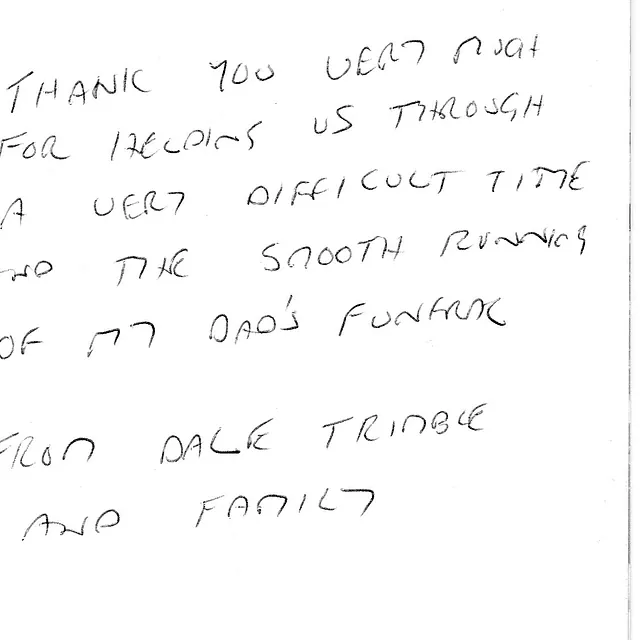 THANK YOU VERY MUCH
FOR HELPING US THROUGH
A VERY DIFFICULT TIME
AND THE SMOOTH RUNNING
OF MY DAD'S FUNERAL
FROM DALE TRIMBLE
AND FAMILY